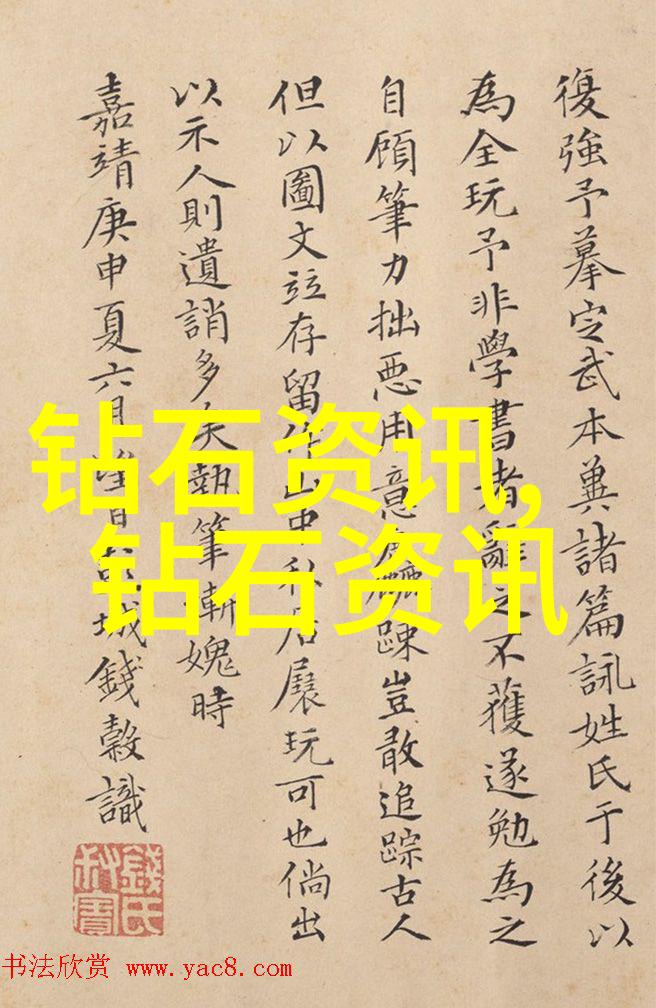 復強予摹定武本兼諸篇詠姓氏于後以
為全玩予非學書者辭之不獲遂勉為之
自顧筆力拙惡用意麤踈豈敢追踪古人
但以圖文竝存留作山中私居展玩可也倘出
以示人則遺誚多矣執筆慙媿時
嘉靖庚申夏六月 城錢榖識
錢氏
钻石资讯,
钻石资讯
书法欣赏 www.yac8.com